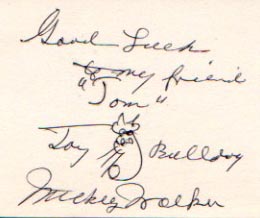 Good Luck
to my friend
"Tom"
Toy Bulldog
Mickey Walker